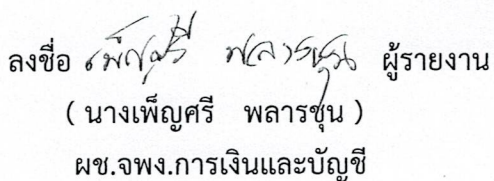 ลงชื่อ เพ็ญศรี พลารชุน ผู้รายงาน
( นางเพ็ญศรี พลารชุน )
ผช.จพง.การเงินและบัญชี